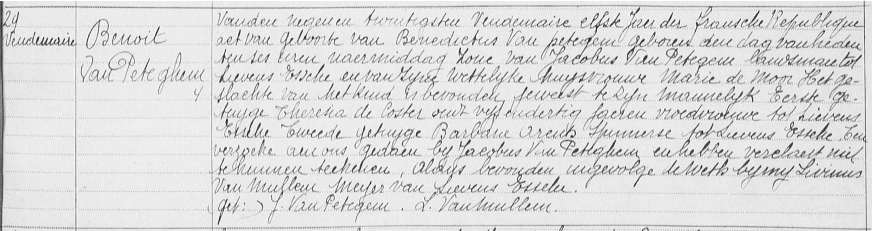 29
Vendemaire
Benoit
Van Peteghem
4
Vanden negenen twintigsten Vendemaire elfste Jaer der fransche Republique
act van geboorte van Benedictus Van petegem geboren den dag van heden
ten ses uren naermiddag Zone van Jacobus Van Petegem Landsman tot
Lievens Essche en van Zijne Wettelyke huysvrouwe Marie de Moor Het ge-
slachte van het kind is bevonden geweest te zijn mannelyk Eerste ge-
tuyge Theresia de Coster oudt vyf en dertig jaeren vroedvrouwe tot Lievens
Essche Tweede getuyge Barbara Arens Spinnerse tot Lievens Essche Een
verzoeke aen ons gedaen by Jacobus Van Peteghem en hebben verclaert niet
te kunnen teekenen, Aldus bevonden ingevolge de Weth by my Livinus
Van Mullem Meyer van Lievens Essche.
(get:) J. Van Petegem. L. Van Mullem.